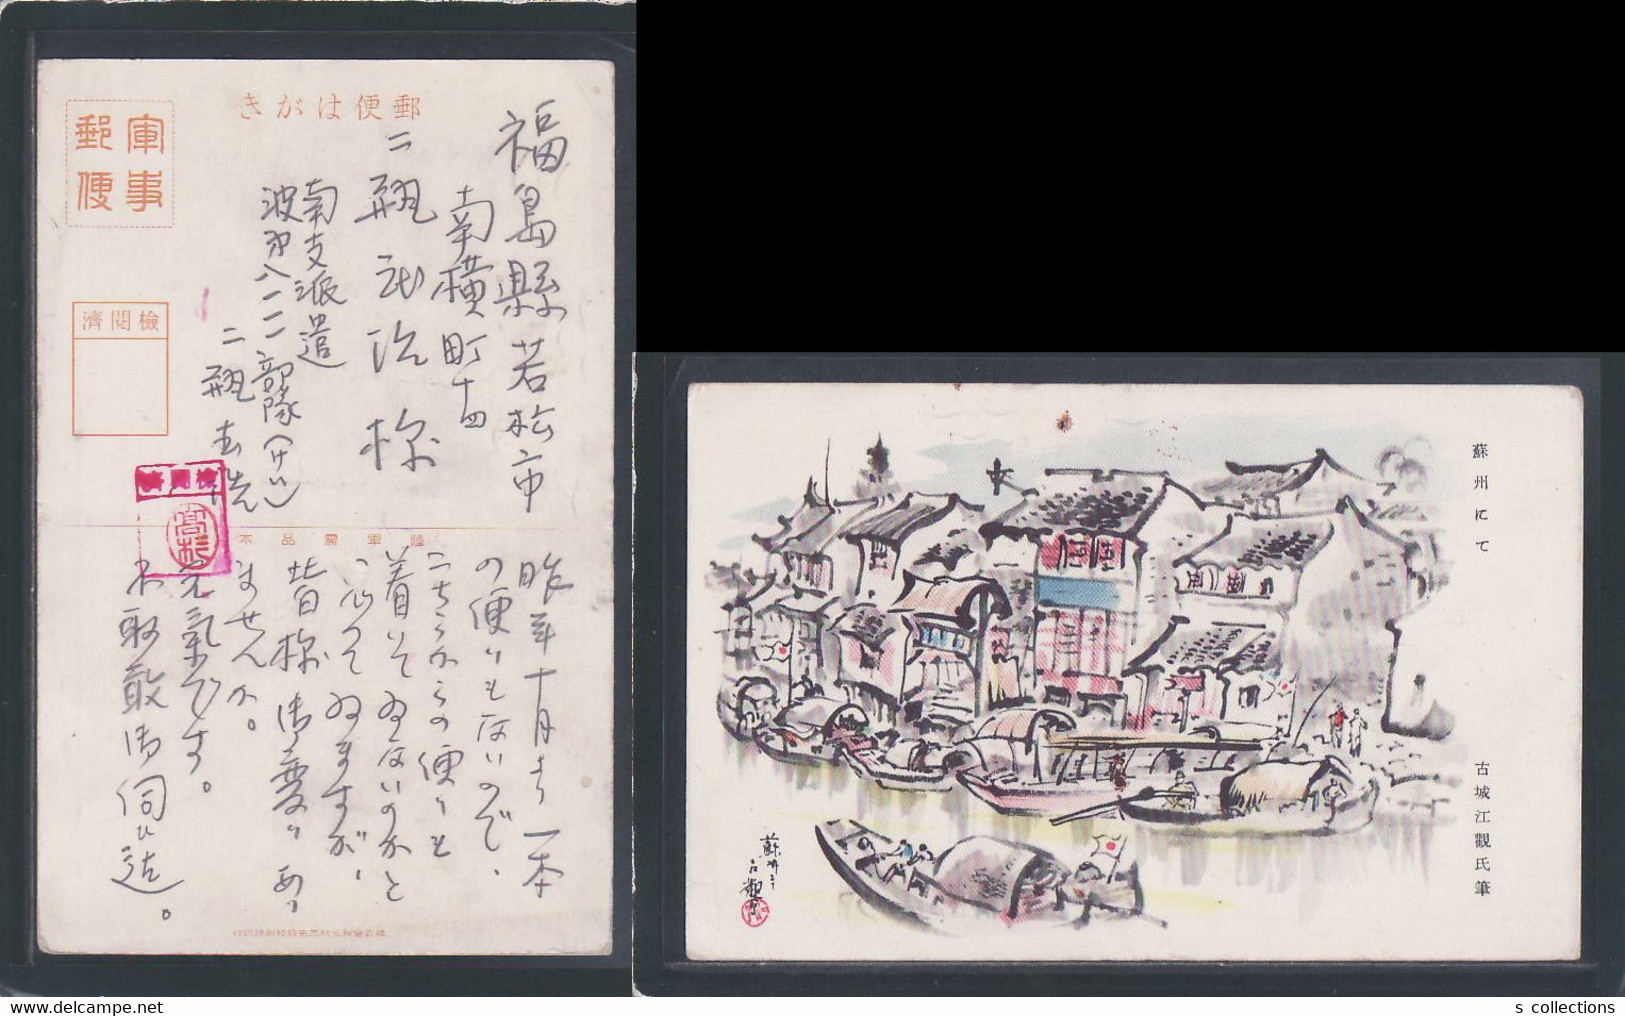 郵便はがき
軍事
郵便
検閲済
福島縣若松市
南横町十四
二瓶 治様
南支派遣
波第八一一一部隊(けい)
二瓶
検閲済
高杉
陸軍需品本
昨年十月より一本
の便りもないので、
こちらからの便りも
着いてゐないのかと
心の て ゐますが、
皆様御変りあり
ませんか。
元氣です。
不取敢御伺ひ迄。
蘇州にて
古城江觀氏筆
蘇州ニテ
江觀
s collections